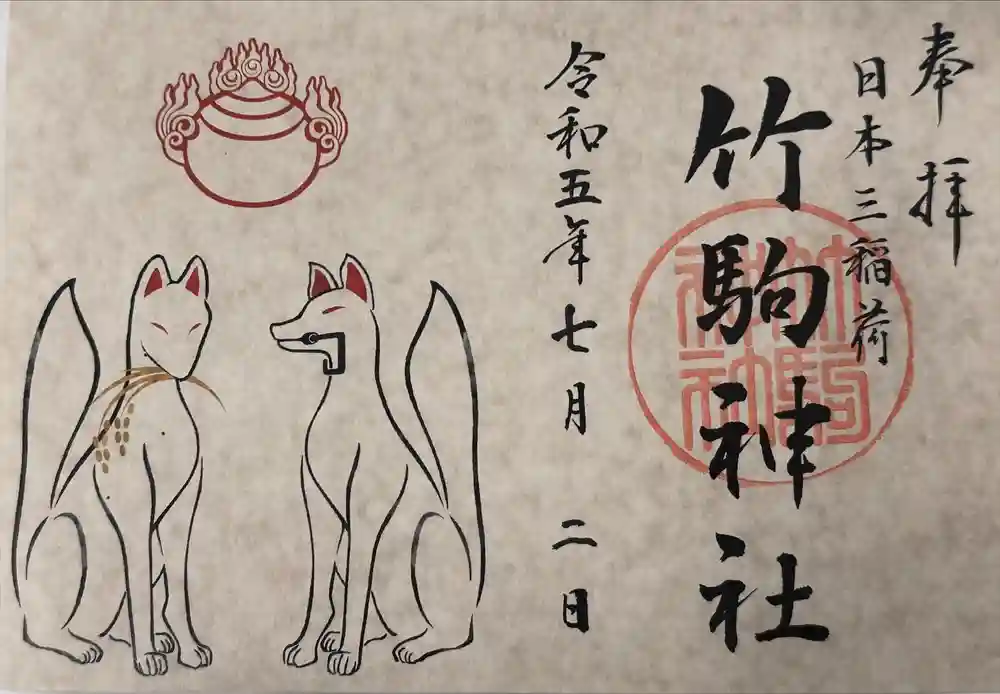 奉拝
日本三稲荷
竹駒神社
令和五年七月二日